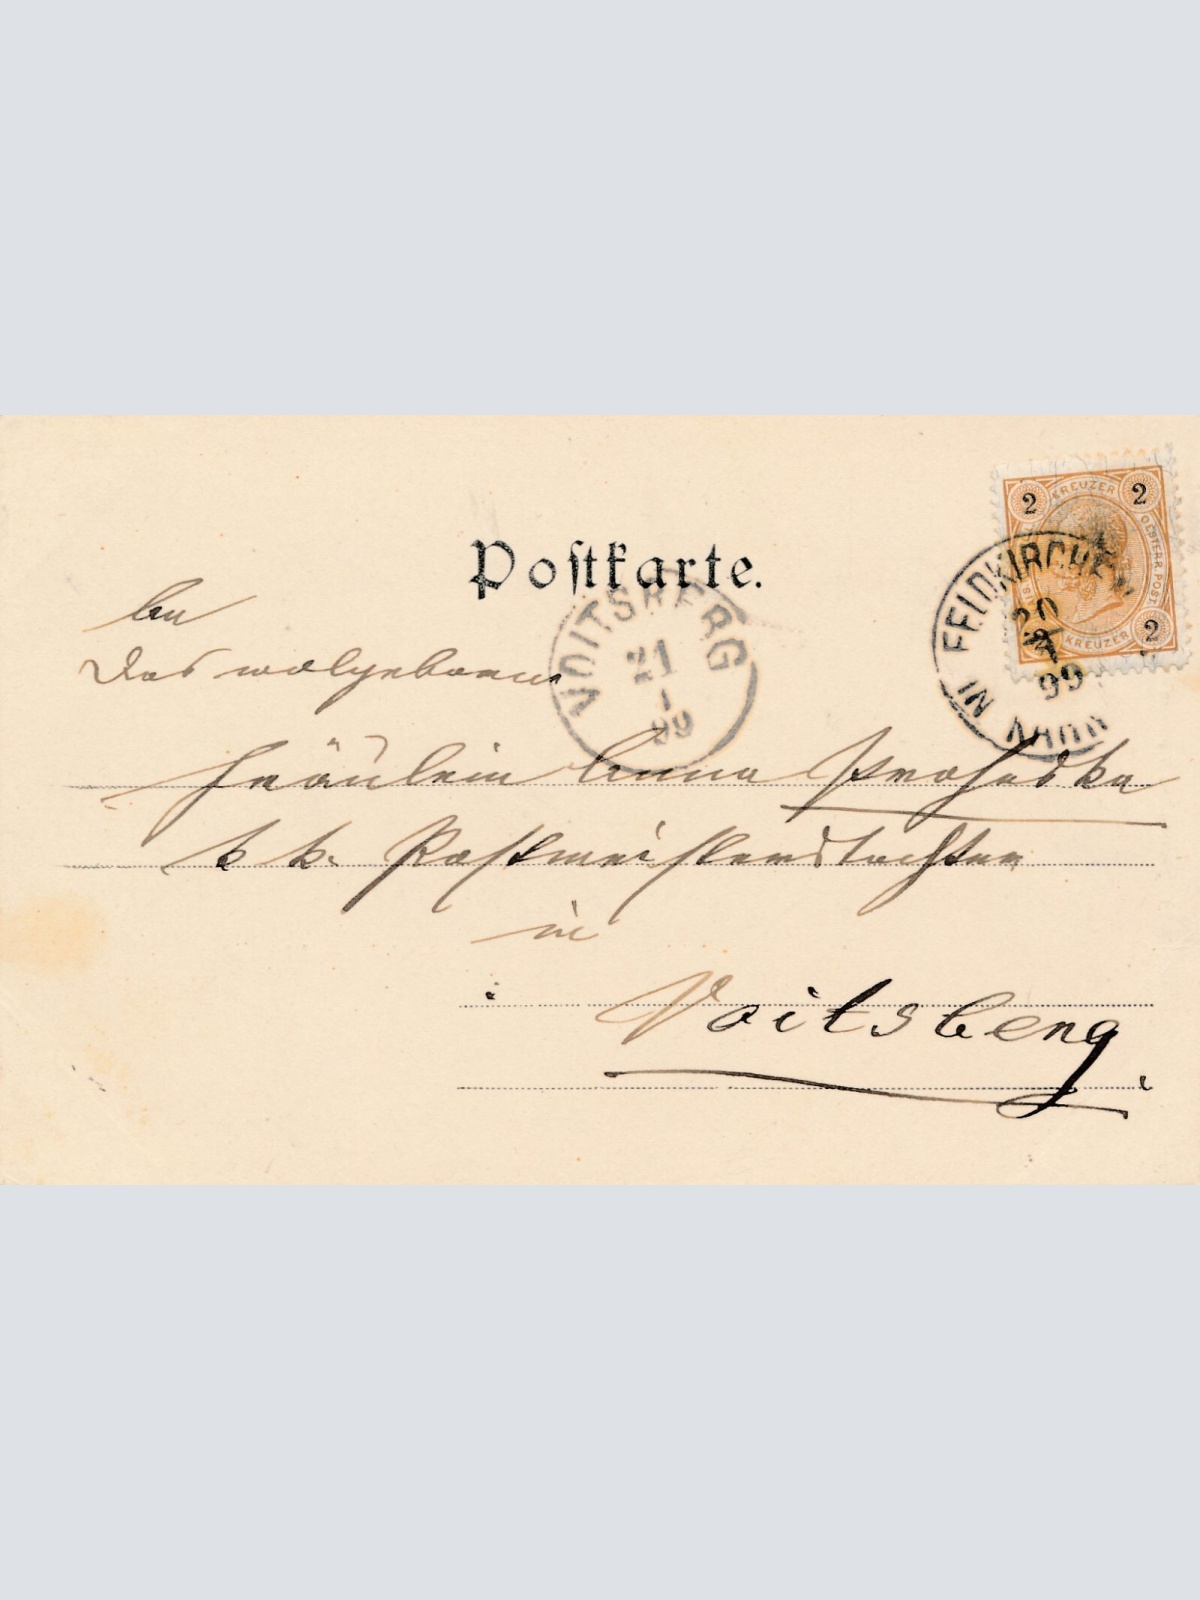 Postkarte.
2 KREUZER 2
OESTERR. POST
KREUZER 2
FELDKIRCHEN
IN
20
99
VOITSBERG
21
1
99
An
Das wolgeborene
Fräulein Anna Prohaska
k. k. Postmeisterstochter
in
Voitsberg.